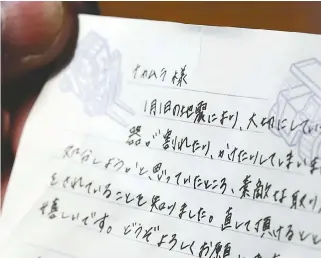 ナカムラ様
1月1日の地震により、大切にしてい
器が割れたり、かけたりしてしまいま
処分しようかと思っていたところ、素敵な取り
をされていることを知りました。直して頂けるとと
嬉しいです。どうぞよろしくお願い